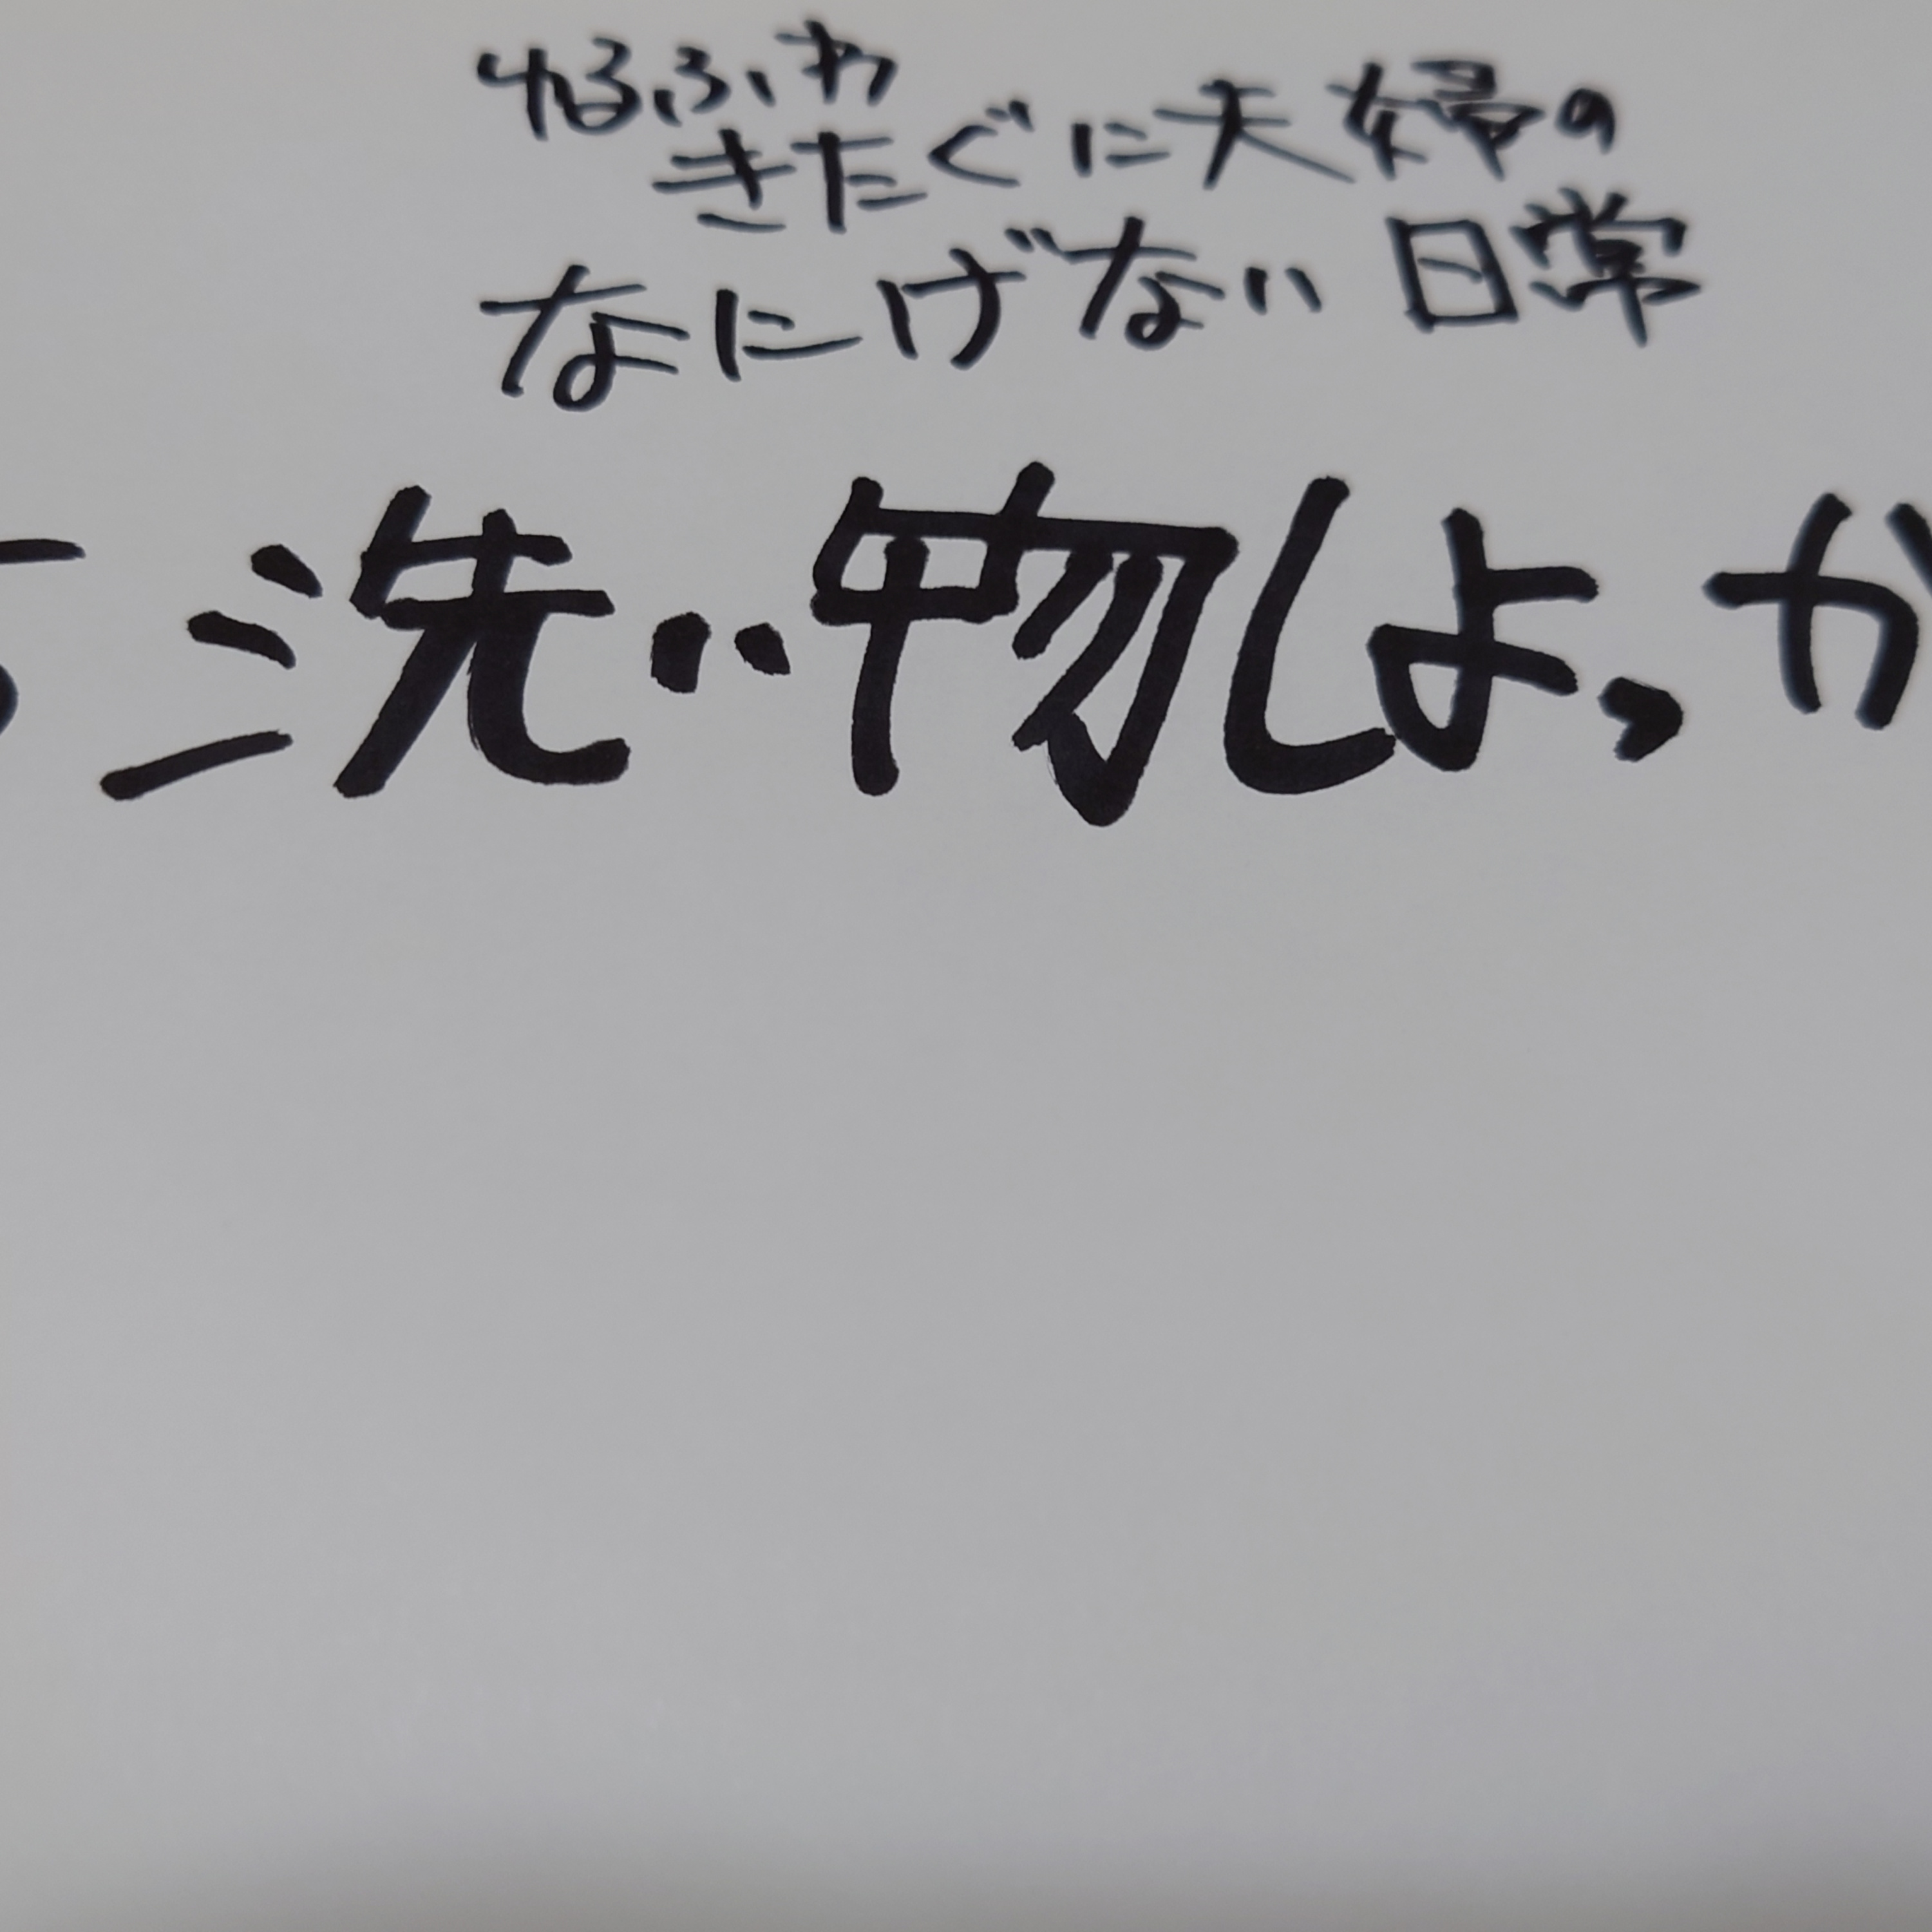 ゆるふわ
きたぐに夫婦の
なにげない日常
洗い物しよ、か